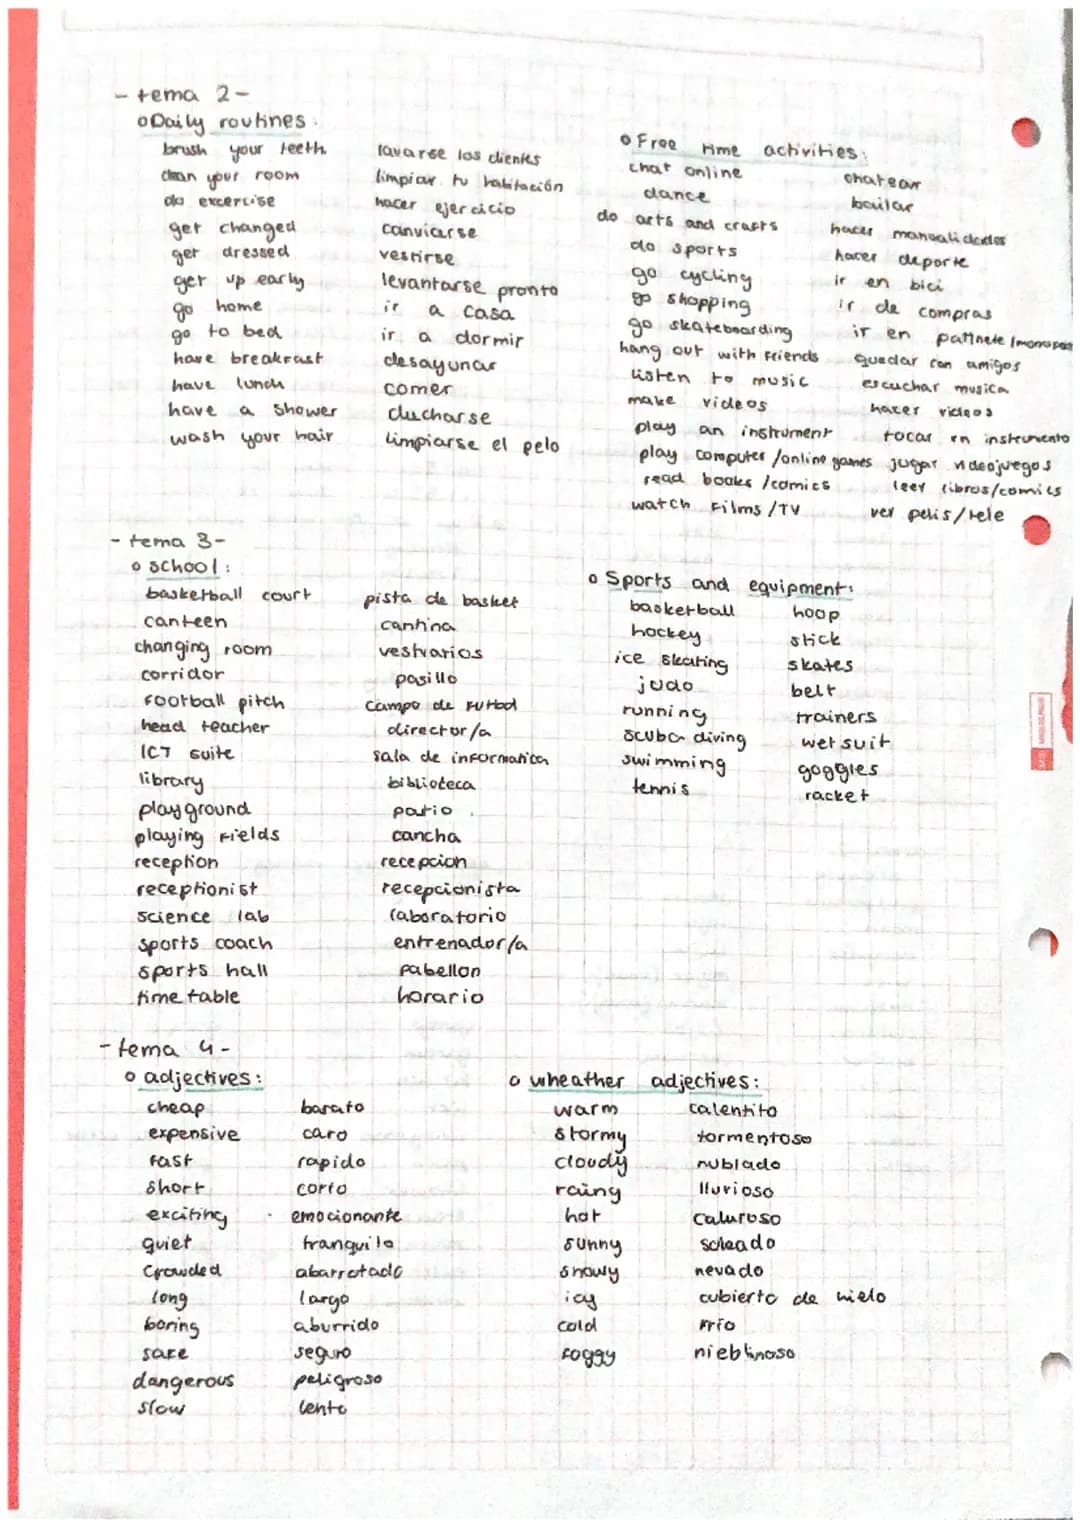 - tema 2-
o Daily routines:
brush your teeth lavarse los dientes
clean your room limpiar tu habitación
do excercise hacer ejercicio
get changed canviarse
get dressed vestirse
get up early levantarse pronto
go home ir a casa
go to bed ir a dormir
have breakfast desayunar
have lunch comer
have a shower ducharse
wash your hair limpiarse el pelo
o Free time activities:
chat online chatear
dance bailar
do arts and crafts hacer manualidades
do sports hacer deporte
go cycling ir en bici
go shopping ir de compras
go skateboarding ir en patinete /monopatin
hang out with friends quedar con amigos
listen to music escuchar musica
make videos hacer videos
play an instrument tocar un instrumento
play computer /online games jugar videojuegos
read books /comics leer libros/comics
watch films /TV ver pelis/tele
- tema 3-
o school:
basketball court pista de basket
canteen cantina
changing room vestuarios
corridor pasillo
football pitch campo de futbol
head teacher director/a
ICT suite sala de informatica
library biblioteca
playground patio
playing fields cancha
reception recepcion
receptionist recepcionista
science lab laboratorio
sports coach entrenador/a
sports hall pabellon
timetable horario
o Sports and equipment:
basketball hoop
hockey stick
ice skating skates
judo belt
running trainers
scuba diving wetsuit
swimming goggles
tennis racket
- tema 4-
o adjectives:
cheap barato
expensive caro
fast rapido
short corto
exciting emocionante
quiet tranquilo
crowded abarrotado
long largo
boring aburrido
safe seguro
dangerous peligroso
slow lento
o wheather adjectives:
warm calentito
stormy tormentoso
cloudy nublado
rainy lluvioso
hot caluroso
sunny soleado
snowy nevado
icy cubierto de hielo
cold frio
foggy nieblinoso